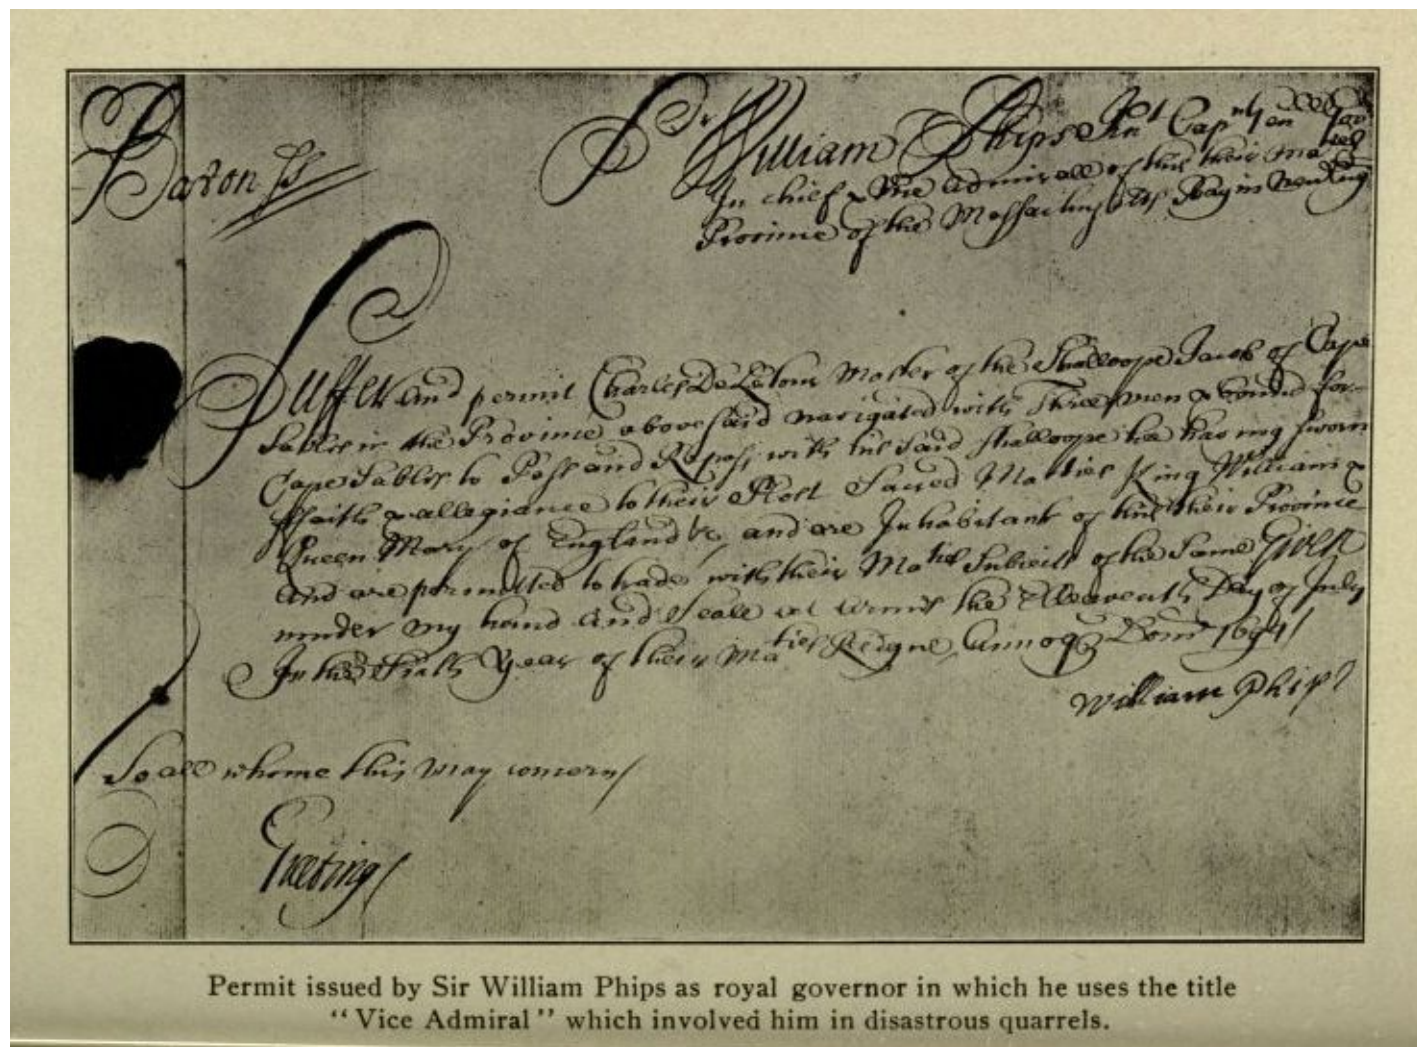 Sr William Phips Knt Capn Gen
In chief & Vice Admirall of this their Maties
Province of the Massachusetts Bay in New Eng
Suffer and permit Charles De Latour Master of the Shalloope Jacob of Cape
Sables in the Province abovesaid navigated with Three men & bound for
Cape Sables to Pass and Repass with his said shalloope he having sworn
ffaith & allegiance to their Most Sacred Maties King William &
Queen Mary of England &c, and are Inhabitant of this their Province
and are permitted to trade with their Maties Subiects of the Same Given
under my hand and Seale at arms the Eleaventh Day of July
In the Sixth Year of their Maties Reigne, Annoq Dom 1694/
William Phips
To all whome this may concern/
Greeting/
Permit issued by Sir William Phips as royal governor in which he uses the title
“Vice Admiral” which involved him in disastrous quarrels.